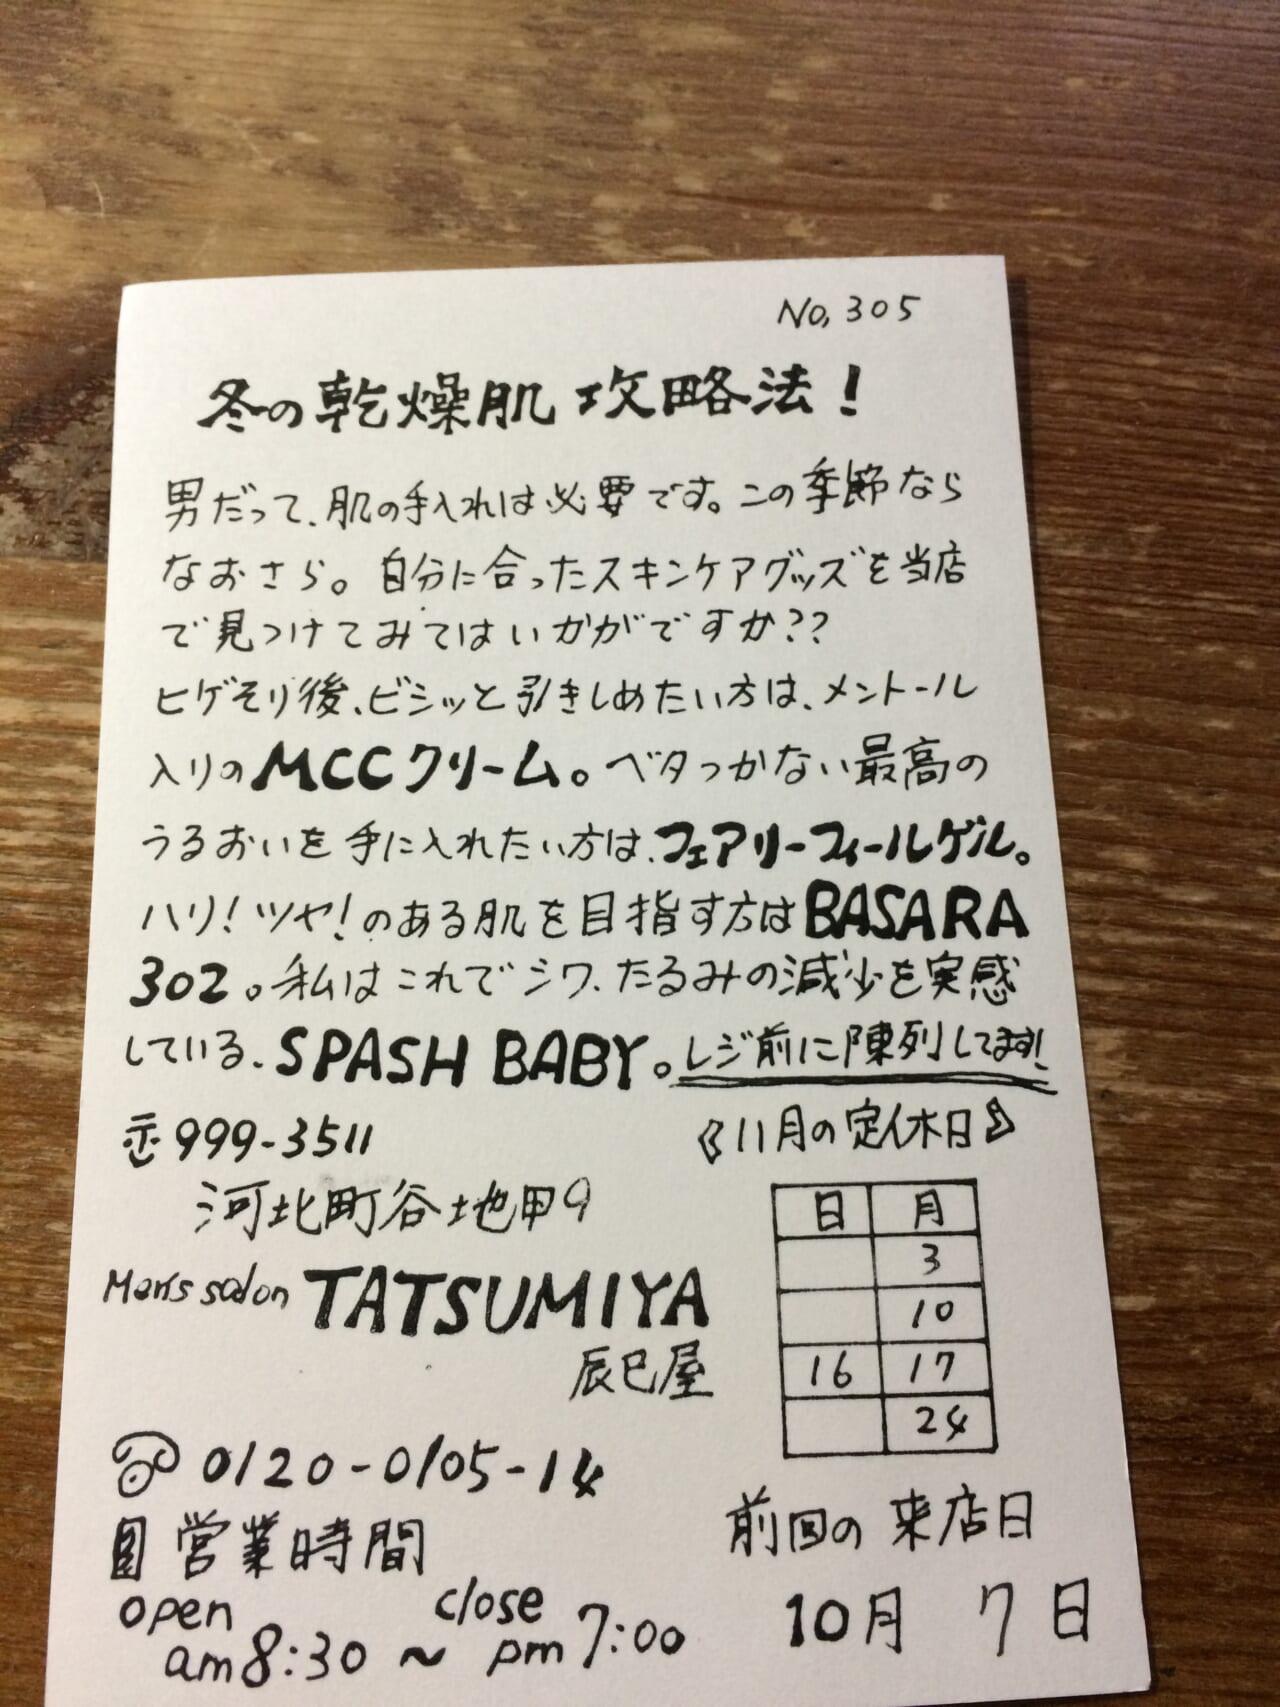 No,305
冬の乾燥肌攻略法！
男だって、肌の手入れは必要です。この季節なら
なおさら。自分に合ったスキンケアグッズを当店
で見つけてみてはいかがですか??
ヒゲそり後、ビシッと引きしめたい方は、メントール
入りのMCCクリーム。ベタつかない最高の
うるおいを手に入れたい方は、フェアリーフィールゲル。
ハリ！ツヤ！のある肌を目指す方はBASARA
302。私はこれでシワ、たるみの減少を実感
している、SPASH BABY。レジ前に陳列してます！
〒999-3511
河北町谷地甲9
Men's salon TATSUMIYA
辰巳屋
☎0120-0105-14
営業時間
open close
am8:30～pm7:00
《11月の定休日》
日 月
3
10
16 17
24
前回の来店日
10月 7日